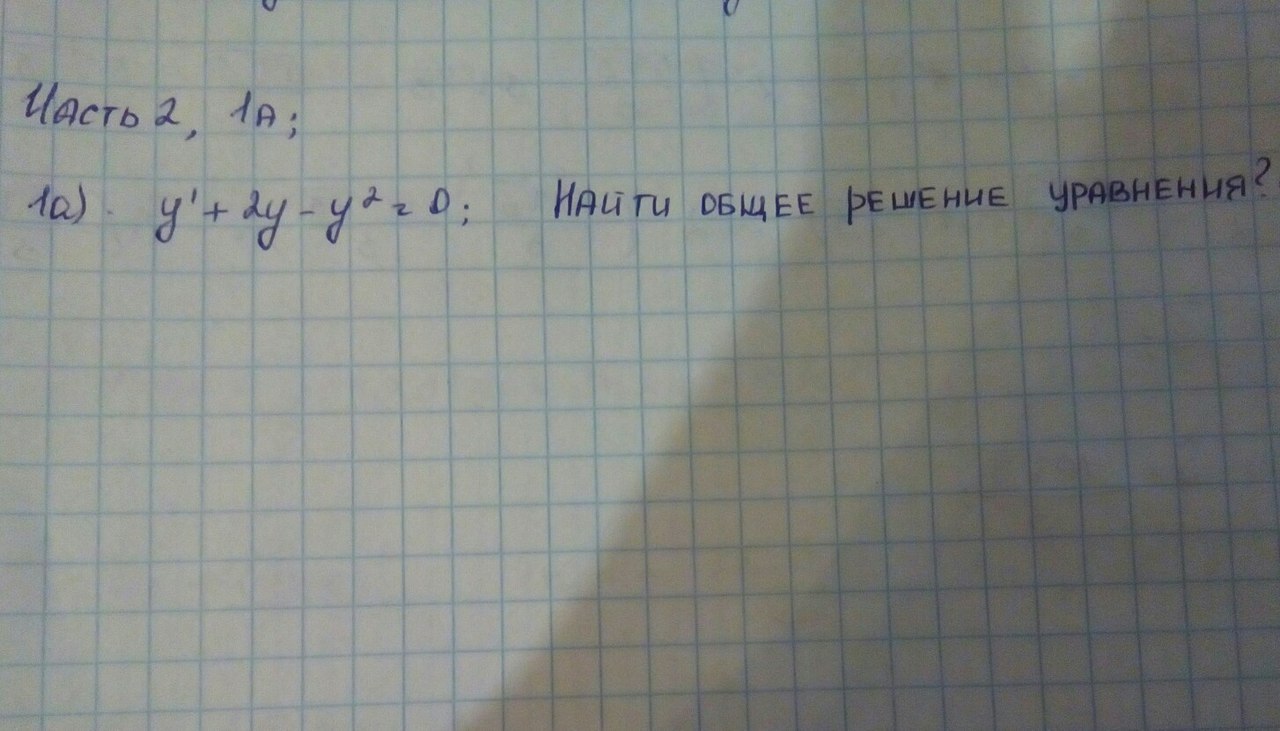 Часть 2, 1А;
1а). y' + 2y - y² = 0; НАЙТИ ОБЩЕЕ РЕШЕНИЕ УРАВНЕНИЯ?